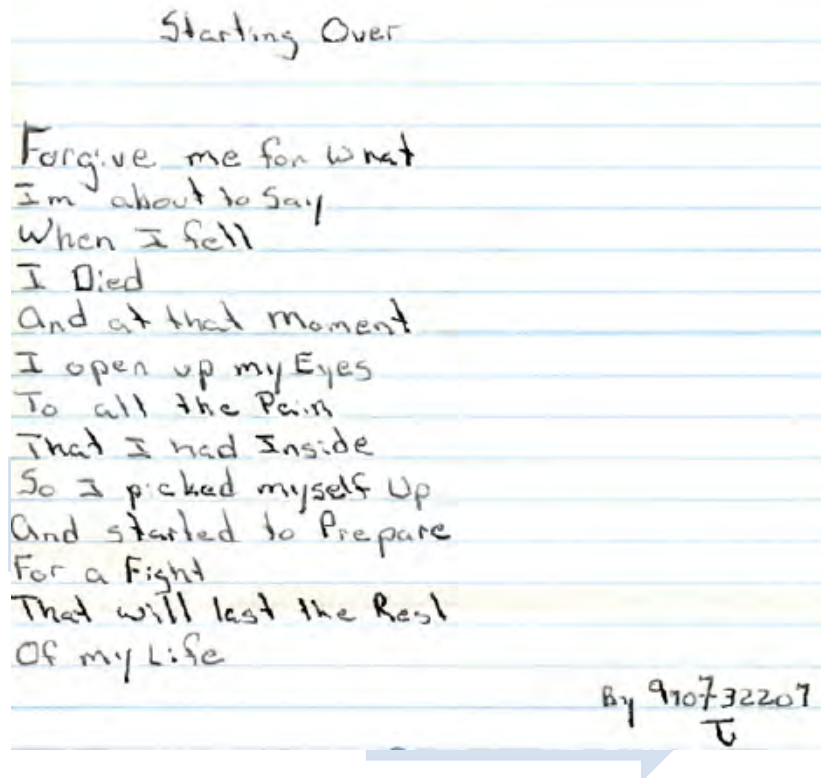 Starting Over
Forgive me for what
Im about to Say
When I fell
I Died
And at that moment
I open up my Eyes
To all the Pain
That I had Inside
So I picked myself Up
And started to Prepare
For a Fight
That will last the Rest
Of my Life
By 910732207